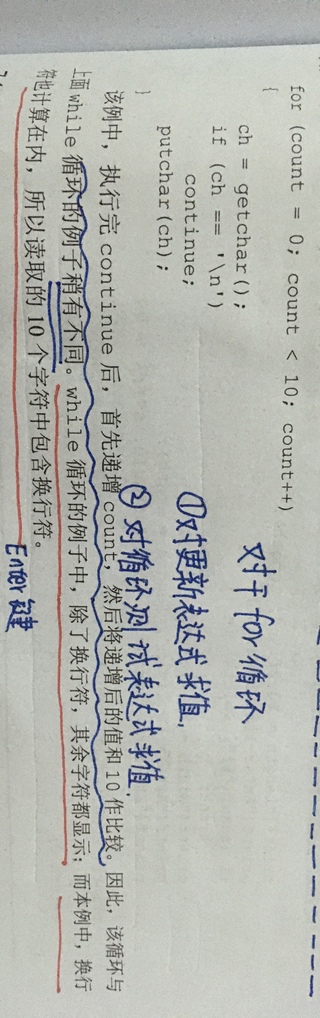 for (count = 0; count < 10; count++)
{
ch = getchar();
if (ch == '\n')
continue;
putchar(ch);
}
对于for循环
①对更新表达式求值,
②对循环测试表达式求值.
该例中，执行完 continue 后，首先递增 count，然后将递增后的值和 10 作比较。因此，该循环与
上面 while 循环的例子稍有不同。while 循环的例子中，除了换行符，其余字符都显示；而本例中，换行
符也计算在内，所以读取的 10 个字符中包含换行符。
Enter键